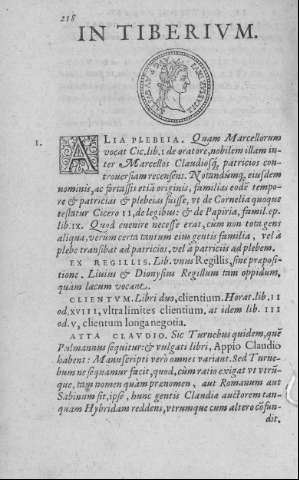 218
IN TIBERIVM.
I.
ALIA PLEBEIA. Quam Marcellorum
vocat Cic. lib. 1 de oratore, nobilem illam in-
ter Marcellos Claudiosq́, patricios con-
trouersiam recensens. Notandumq́, eiusdem
nominis, ac fortassis etiā originis, familias eodē tempo-
re & patricias & plebeias fuisse, vt de Cornelia quoque
testatur Cicero 11, de legibus: & de Papiria, famil. ep.
lib. IX. Quod euenire necesse erat, cum non tota gens
aliqua, verum certa tantum eius gentis familia, vel à
plebe transibat ad patricios, vel à patriciis ad plebem.
EX REGILLIS. Lib. vnus Regillis, sine præposi-
tione. Liuius & Dionysius Regillum tam oppidum,
quam lacum vocant.
CLIENTVM. Libri duo, clientium. Horat. lib. II
od. XVIII, vltra limites clientium, at idem lib. III
od. V, clientum longa negotia.
ATTA CLAVDIO. Sic Turnebus quidem, quē
Pulmannus sequitur: & vulgati libri, Appio Claudio
habent: Manuscripti verò omnes variant. Sed Turne-
bum ne sequamur facit, quod, cùm ratio exigat vt vtrū-
que, tam nomen quàm prænomen, aut Romanum aut
Sabinum sit, ipse, hunc gentis Claudia auctorem tan-
quam Hybridam reddens, vtrumque cum altero cōfun-
dit.